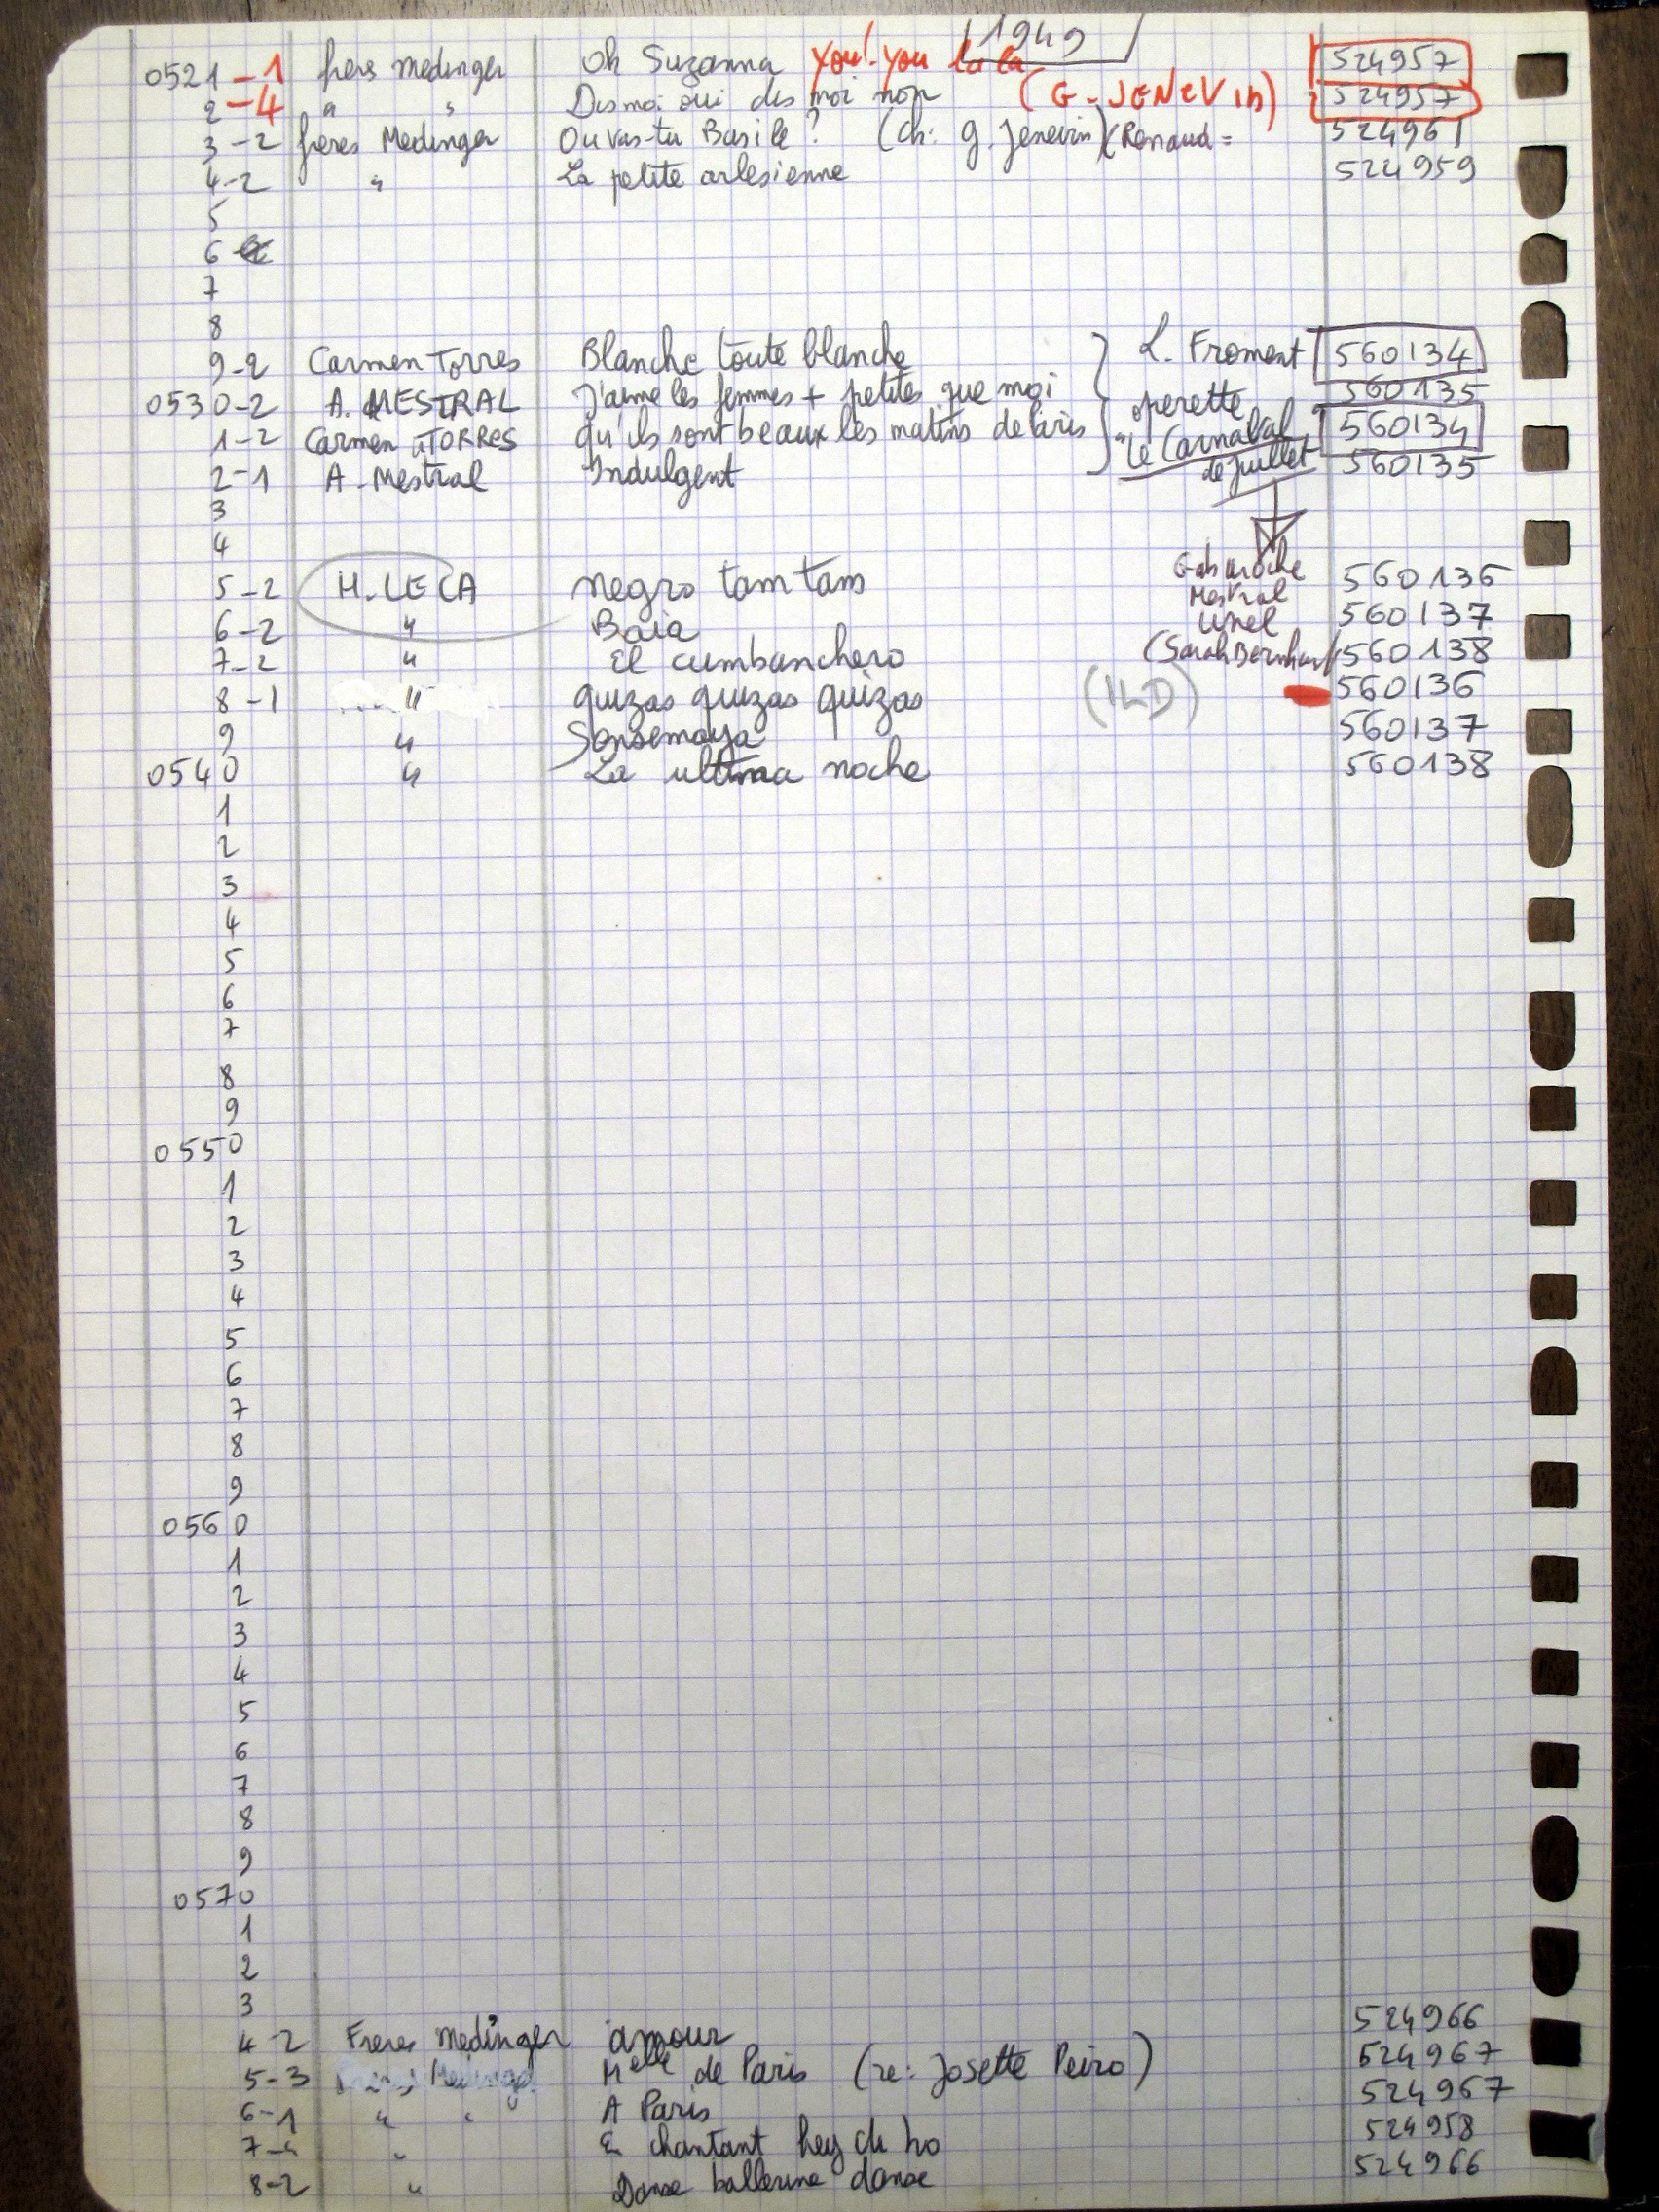 1949
0521-1 freres Medinger Oh Suzanna You!-You la la 524957
2-4 " " Dis moi oui dis moi non (G-JENEVIN) 524957
3-2 freres Medinger Ou vas-tu Basile? (ch: G. Jenevin) (Renaud= 524961
4-2 " La petite arlesienne 524959
5
6
7
8
9-2 Carmen Torres Blanche toute blanche L. Froment 560134
0530-2 A. MESTRAL J'aime les femmes + petites que moi operette 560135
1-2 Carmen TORRES Qu'ils sont beaux les matins de Paris "Le Carnaval 560134
2-1 A. Mestral Indulgent de Juillet 560135
3
4
5-2 H. LECA Negro tam tam Gabaroche 560136
Mestral
6-2 " Baia Urnel 560137
7-2 " El cumbanchero (Sarah Bernhart 560138
8-1 " quizas quizas quizas (ILD) 560136
9 " Sensemaya 560137
0540 " La ultima noche 560138
1
2
3
4
5
6
7
8
9
0550
1
2
3
4
5
6
7
8
9
0560
1
2
3
4
5
6
7
8
9
0570
1
2
3
4-2 Freres Medinger amour 524966
5-3 Freres Medinger Melle de Paris (re: Josette Peiro) 524967
6-1 " " A Paris 524967
7- " En chantant hey di ho 524958
8-2 " Danse ballerine danse 524966